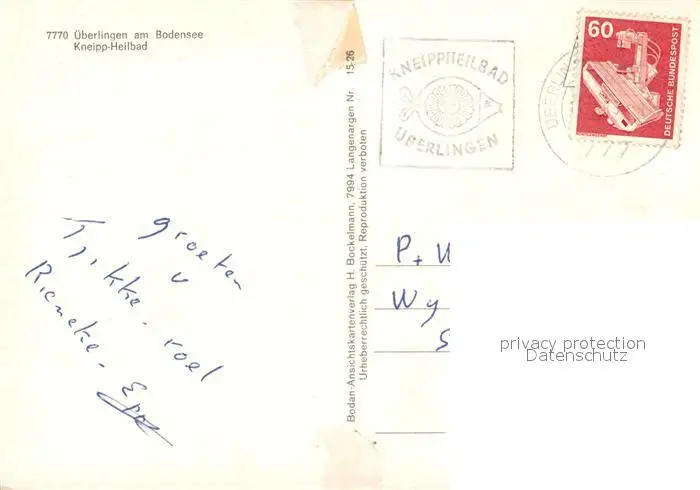 7770 Überlingen am Bodensee
Kneipp-Heilbad
groeten
v
Tjikke - roel
Rieneke -
Bodan-Ansichtskartenverlag H. Bockelmann, 7994 Langenargen Nr. 15-26
Urheberrechtlich geschützt, Reproduktion verboten
KNEIPPHEILBAD
ÜBERLINGEN
ÜBERLIN
777
60
DEUTSCHE BUNDESPOST
P+
Wy
S
privacy protection
Datenschutz